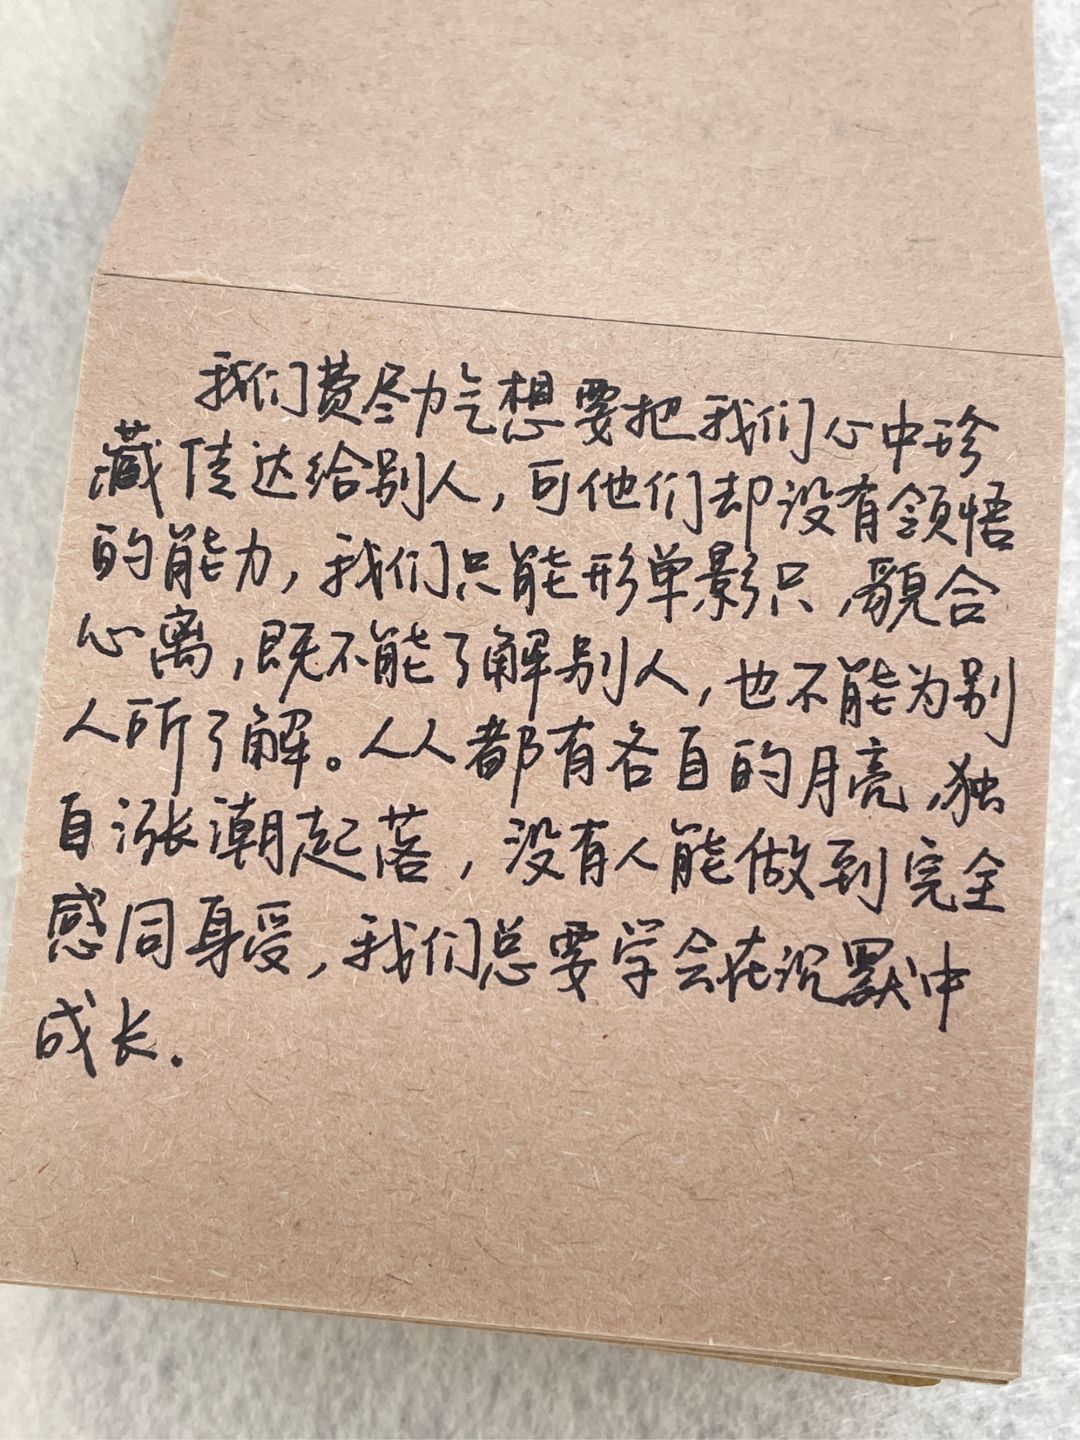 我们费尽力气想要把我们心中珍
藏传达给别人，可他们却没有领悟
的能力，我们只能形单影只，貌合
心离，既不能了解别人，也不能为别
人所了解。人人都有各自的月亮，独
自涨潮起落，没有人能做到完全
感同身受，我们总要学会在沉默中
成长.